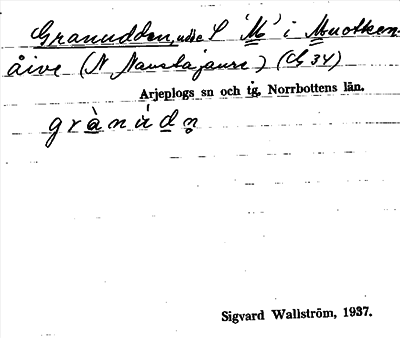 Granudden, udde S 'M' i Muotken-
åive (N Naustajaure) (G 34)
Arjeplogs sn och tg, Norrbottens län.
g r à n ú d n̥
Sigvard Wallström, 1937.